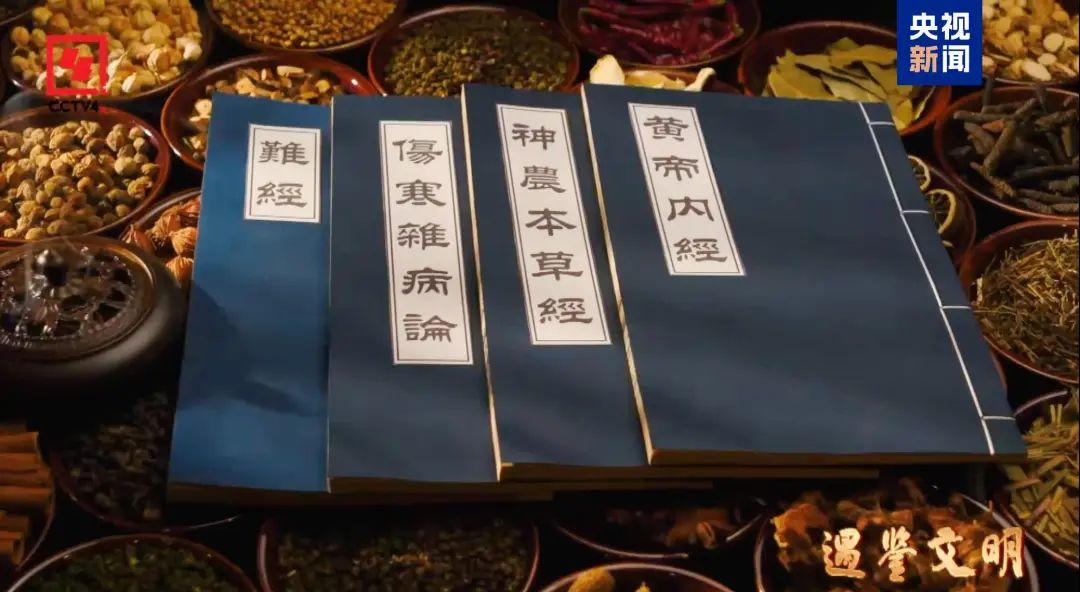 CCTV4
央视
新闻
難經
傷寒雜病論
神農本草經
黄帝内經
遇鉴文明